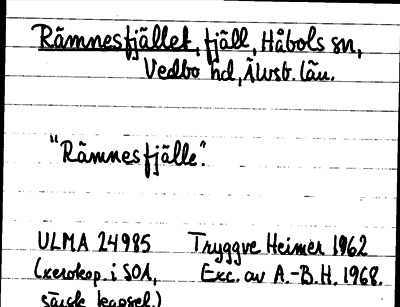 Rämnesfjället, fjäll, Håbols sn,
Vedbo hd, Älvsb. län.
"Rämnesfjälle".
ULMA 24985 Tryggve Heimer 1962
(xerokop. i SOA, Exc. av A.-B.H. 1968.
särsk. kapsel.)